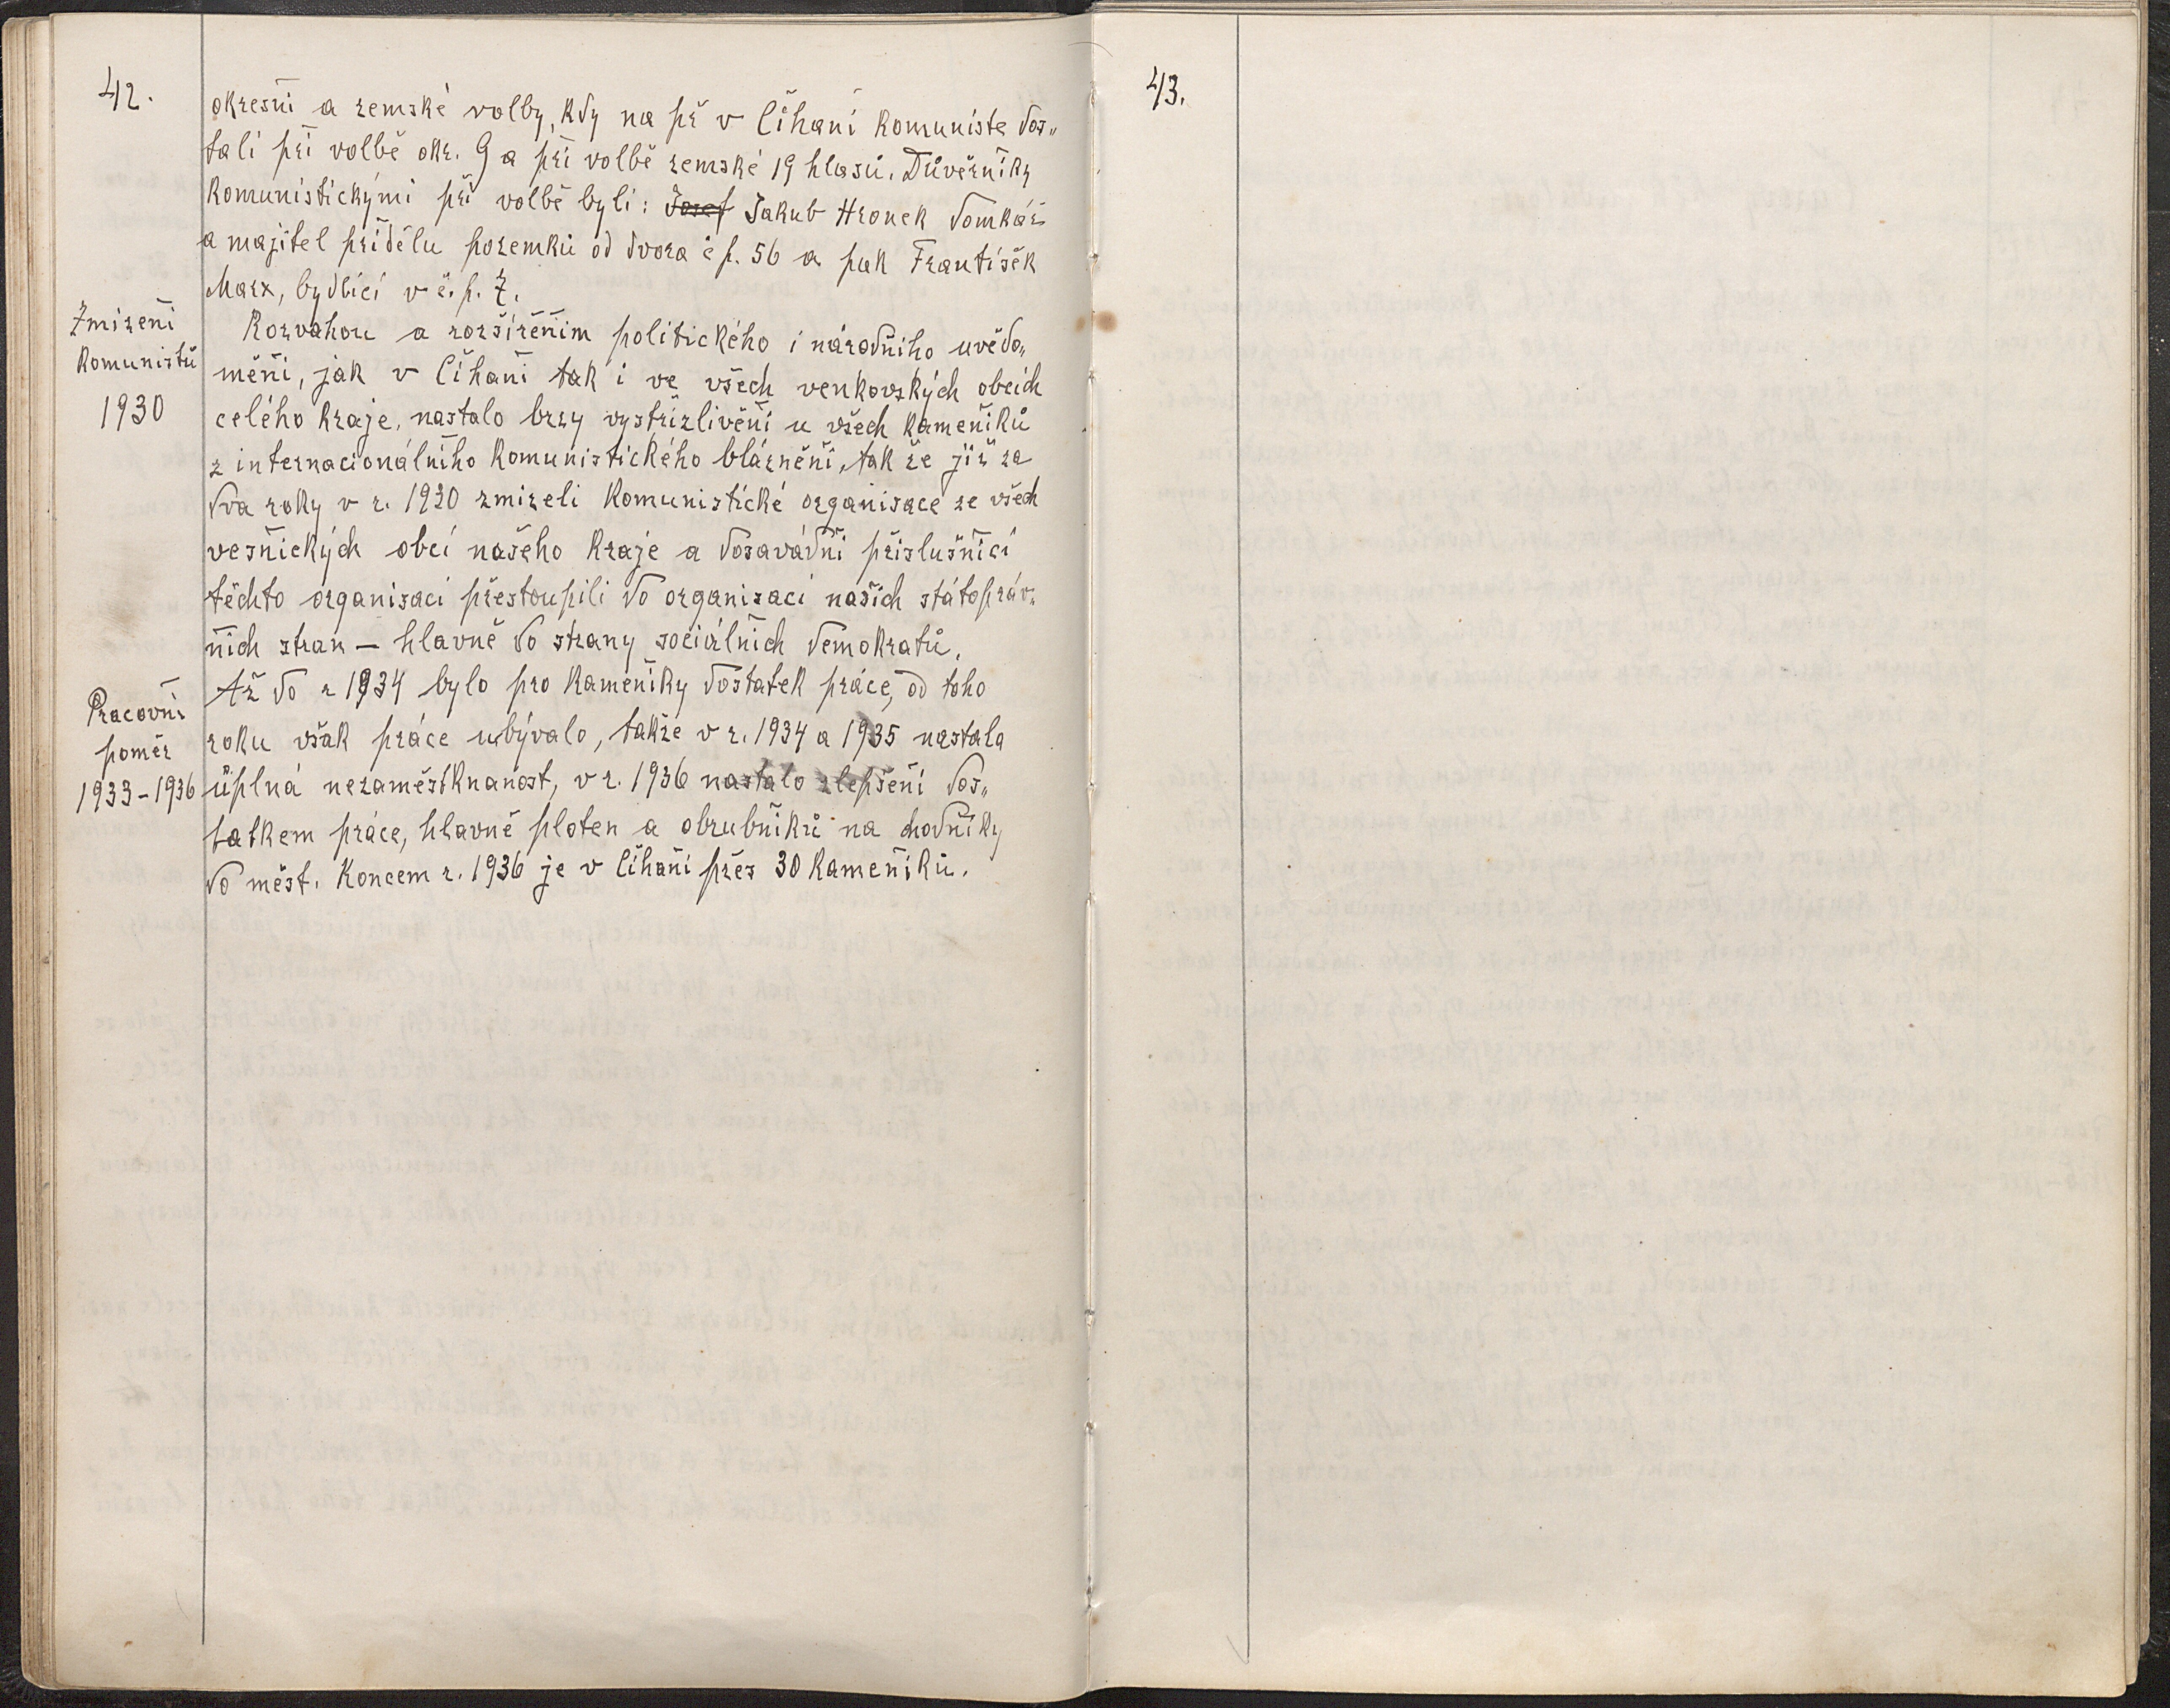 42.
okresní a zemské volby, kdy na př v Číhani komunisté dos„
tali při volbě okr. 9 a při volbě zemské 19 hlasů. Důvěrníky
komunistickými při volbě byli: Josef Jakub Hronek domkář
a majitel přídělu pozemků od dvora č p. 56 a pak František
Marx, bydlící v č. p. 7.
Zmizení
komunistů
1930
Rozvahou a rozšířením politického i národního uvědo„
mění, jak v Číhani tak i ve všech venkovských obcích
celého kraje, nastalo brzy vystřízlivění u všech kameníků
z internacionálního komunistického bláznění, tak že již za
dva roky v r. 1930 zmizeli komunistické organisace ze všech
vesnických obcí našeho kraje a dosavádní příslušníci
těchto organisací přestoupili do organisací našich státopráv„
ních stran – hlavně do strany sociálních demokratů.
Pracovní
poměr
1933-1936
Až do r 1934 bylo pro kameníky dostatek práce, od toho
roku však práce ubývalo, takže v r. 1934 a 1935 nastala
úplná nezaměstknanost, v r. 1936 nastalo zlepšení dos„
tatkem práce, hlavně ploten a obrubníků na chodníky
do měst. Koncem r. 1936 je v Číhani přes 30 kameníků.
43.